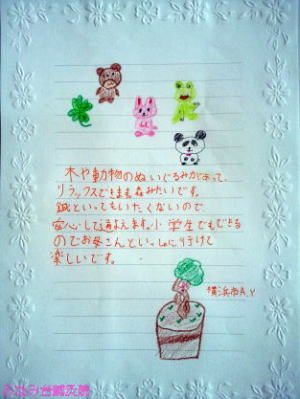 木や動物のぬいぐるみがあって、
リラックスできます。森みたいです。
鍼といってもいたくないので
安心して通えます。小学生でもできる
のでお母さんといっしょに行けて
楽しいです。
横浜市A.Y
みなみ台鍼灸院